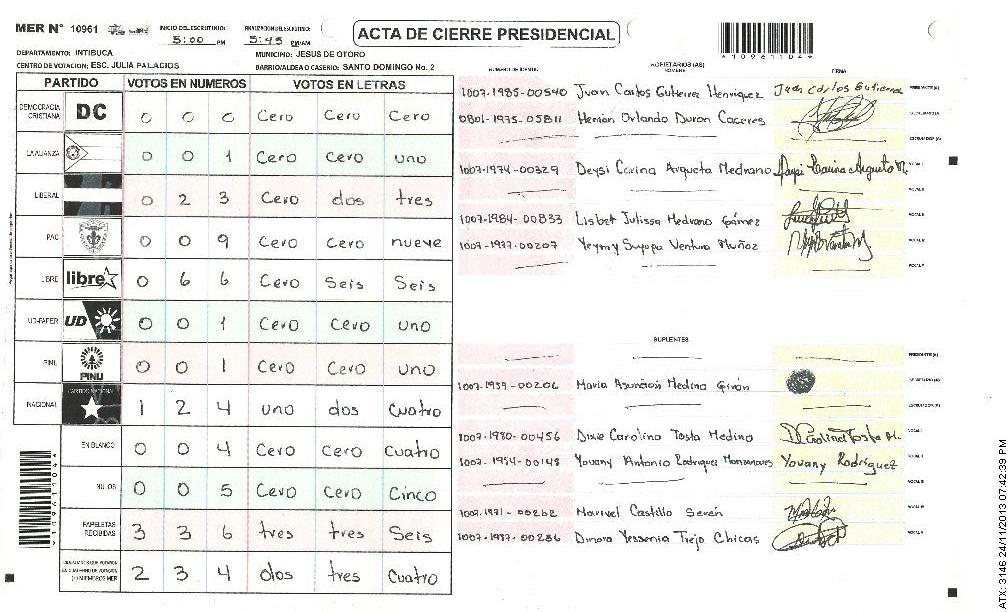 MER N° 10961 INICIO DEL ESCRUTINIO: 5:00 PM FINALIZACION DEL ESCRUTINIO: 5:45 PM/AM
ACTA DE CIERRE PRESIDENCIAL
9109611049
DEPARTAMENTO: INTIBUCA MUNICIPIO: JESUS DE OTORO
CENTRO DE VOTACION: ESC. JULIA PALACIOS BARRIO/ALDEA O CASERIO: SANTO DOMINGO No. 2
PARTIDO VOTOS EN NUMEROS VOTOS EN LETRAS
DEMOCRACIA CRISTIANA DC 0 0 0 Cero Cero Cero
LA ALIANZA 0 0 1 Cero Cero uno
LIBERAL 0 2 3 Cero dos tres
PAC 0 0 9 Cero Cero nueve
LIBRE libre 0 6 6 Cero Seis Seis
UD-FAPER UD 0 0 1 Cero Cero uno
PINU PINU 0 0 1 Cero Cero uno
NACIONAL PARTIDO NACIONAL 1 2 4 uno dos Cuatro
EN BLANCO 0 0 4 Cero Cero Cuatro
NULOS 0 0 5 Cero Cero Cinco
PAPELETAS RECIBIDAS 3 3 6 tres tres Seis
CIUDADANOS QUE VOTARON EN CUADERNO DE VOTACION (+) MIEMBROS MER 2 3 4 dos tres Cuatro
NUMERO DE IDENTI. PROPIETARIOS (AS) NOMBRE FIRMA
1007-1985-00540 Juan Carlos Gutierrez Henriquez Juan Carlos Gutierrez PRESIDENTE (A)
0801-1975-05811 Hernán Orlando Duron Caceres SECRETARIO (A)
ESCRUTADOR (A)
1007-1974-00329 Deysi Carina Argueta Medrano Deysi Carina Argueta M. VOCAL I
VOCAL II
1007-1984-00833 Lisbet Julissa Medrano Gámez VOCAL III
1007-1977-00207 Yeymy Suyapa Ventura Muñoz VOCAL IV
VOCAL V
SUPLENTES
PRESIDENTE (A)
1007-1959-00206 Maria Asunción Medina Girón SECRETARIO (A)
ESCRUTADOR (A)
1007-1980-00456 Dixie Carolina Tosta Medina D Carolina Tosta M. VOCAL I
1007-1954-00148 Yovany Antonio Rodriguez Manzanares Yovany Rodriguez VOCAL II
VOCAL III
1007-1971-00262 Marivel Castillo Seren VOCAL IV
1007-1987-00286 Dinora Yessenia Trejo Chicas VOCAL V
9109611049
ATX: 3146 24/11/2013 07:42:39 PM